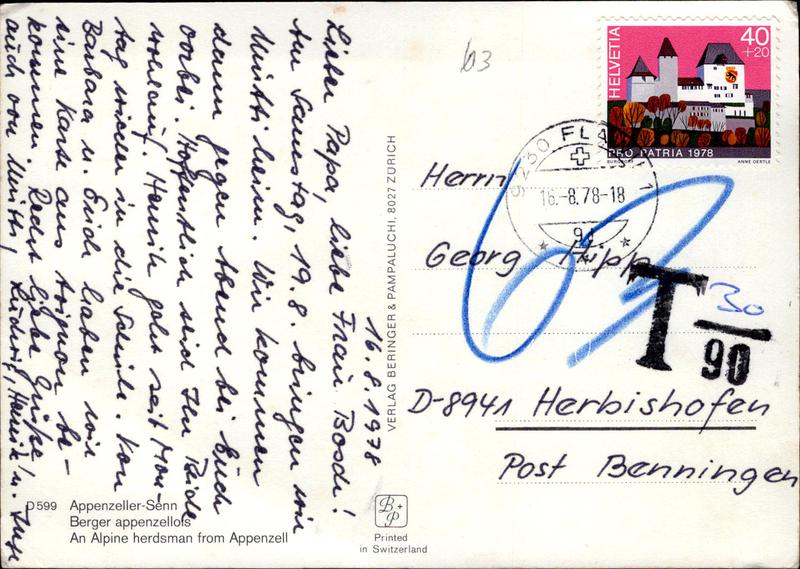 16.8.1978
Lieber Papa, liebe Frau Bosch!
Am Samstag, 19.8. bringen wir
Mutti heim. Wir kommen
dann gegen Abend bei Euch
vorbei. Hoffentlich seid Ihr Beide
wohlauf. Henrik geht seit Mon-
tag wieder in die Schule. Von
Barbara u Erich haben wir
eine Karte aus Avignon be-
kommen. Recht liebe Grüße
auch von Mutti, Ludwig, Henrik u.
D 599 Appenzeller-Senn
Berger appenzellois
An Alpine herdsman from Appenzell
VERLAG BERINGER & PAMPALUCHI, 8027 ZÜRICH
B+P
Printed
in Switzerland
b3
HELVETIA
40
+20
PRO PATRIA 1978
ANNE OERTLE
9230 FLAWIL 1
16.-8.78-18
T
30
90
Herrn
Georg Hipp
D-8941 Herbishofen
Post Benningen